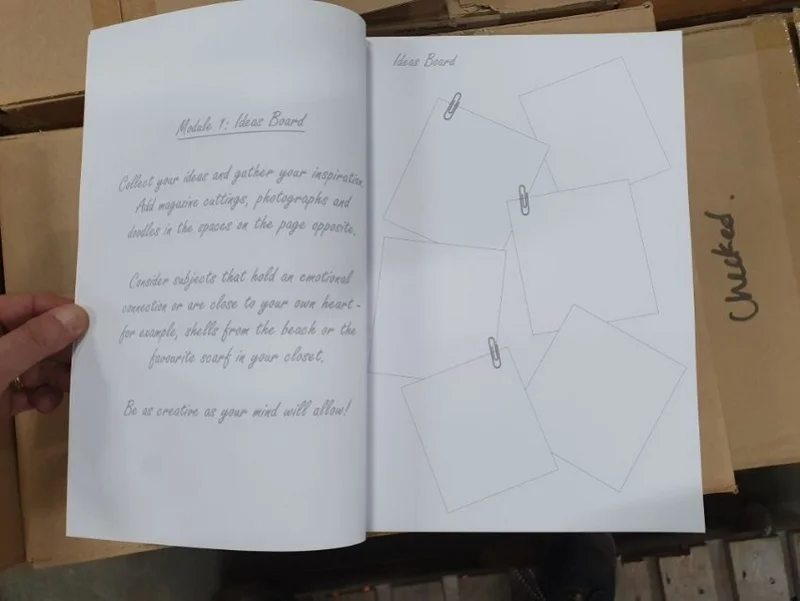 Module 1: Ideas Board
Collect your ideas and gather your inspiration.
Add magazine cuttings, photographs and
doodles in the spaces on the page opposite.
Consider subjects that hold an emotional
connection or are close to your own heart -
for example, shells from the beach or the
favourite scarf in your closet.
Be as creative as your mind will allow!
Ideas Board
Checked.